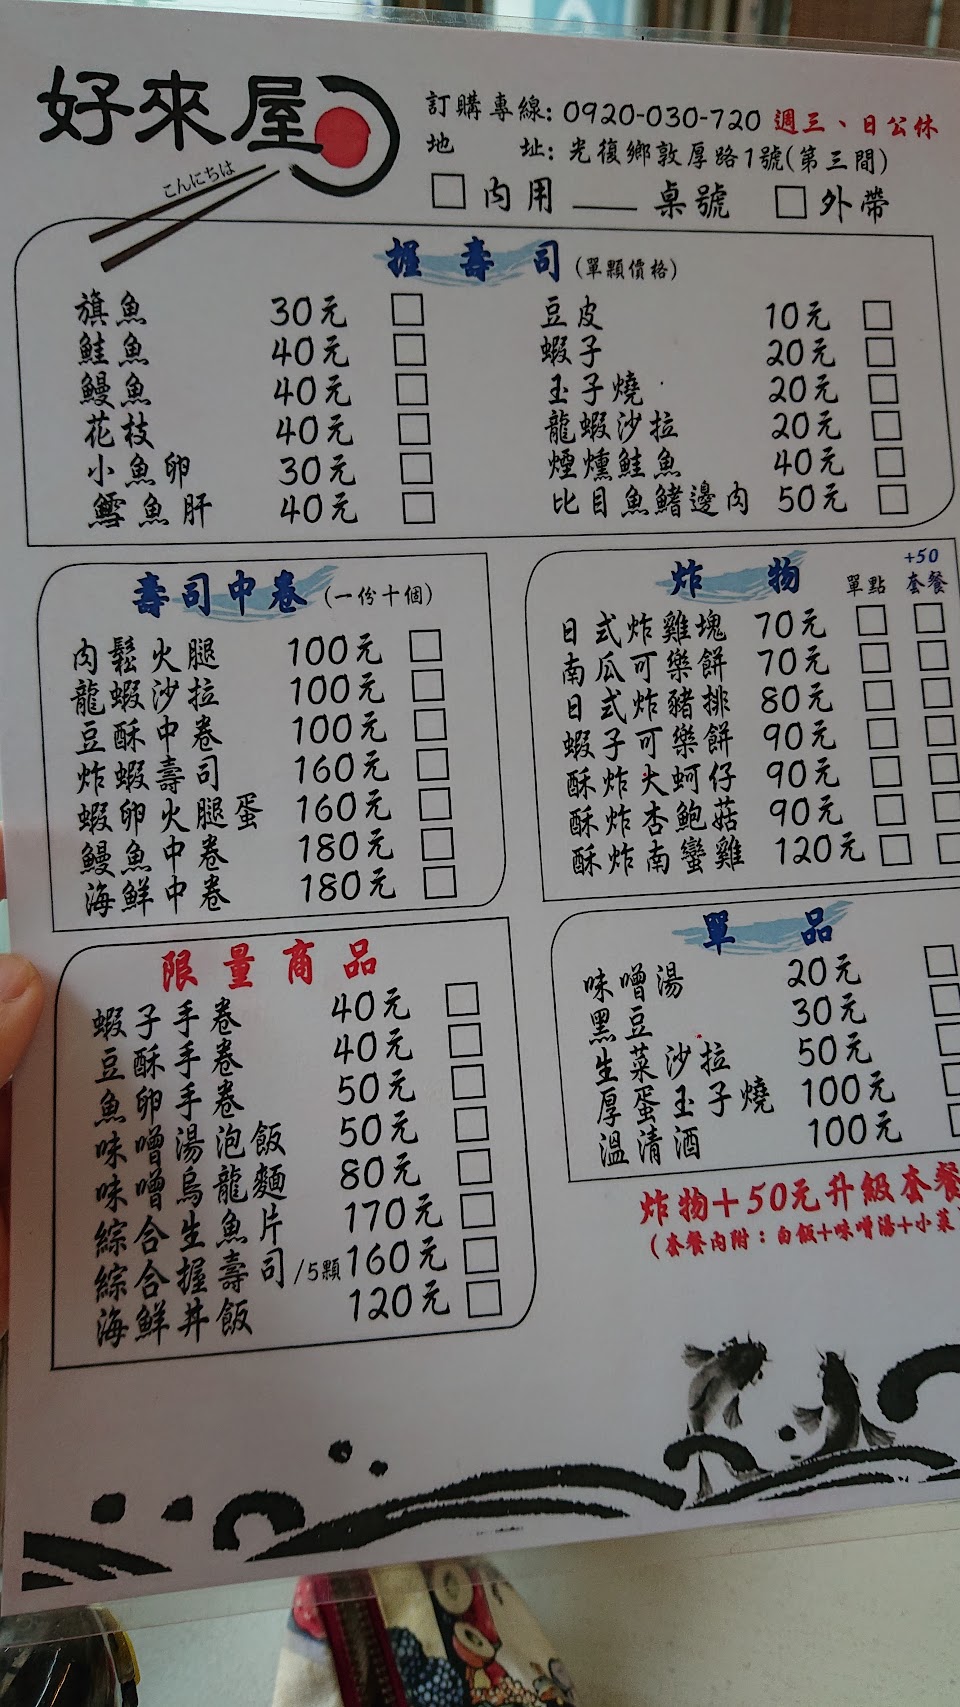 好來屋
こんにちは
訂購專線: 0920-030-720 週三、日公休
地 址: 光復鄉敦厚路1號(第三間)
□內用 ___ 桌號 □外帶
握壽司(單顆價格)
旗魚 30元 □
鮭魚 40元 □
鰻魚 40元 □
花枝 40元 □
小魚卵 30元 □
鱈魚肝 40元 □
豆皮 10元 □
蝦子 20元 □
玉子燒 20元 □
龍蝦沙拉 20元 □
煙燻鮭魚 40元 □
比目魚鰭邊肉 50元 □
壽司中卷(一份十個)
肉鬆火腿 100元 □
龍蝦沙拉 100元 □
豆酥中卷 100元 □
炸蝦壽司 160元 □
蝦卵火腿蛋 160元 □
鰻魚中卷 180元 □
海鮮中卷 180元 □
炸物 單點 +50套餐
日式炸雞塊 70元 □ □
南瓜可樂餅 70元 □ □
日式炸豬排 80元 □ □
蝦子可樂餅 90元 □ □
酥炸大蚵仔 90元 □ □
酥炸杏鮑菇 90元 □ □
酥炸南蠻雞 120元 □ □
限量商品
蝦子手卷 40元 □
豆酥手卷 40元 □
魚卵手卷 50元 □
味噌湯泡飯 50元 □
味噌烏龍麵 80元 □
綜合生魚片 170元 □
綜合握壽司/5顆 160元 □
海鮮丼飯 120元 □
單品
味噌湯 20元 □
黑豆 30元 □
生菜沙拉 50元 □
厚蛋玉子燒 100元 □
溫清酒 100元 □
炸物+50元升級套餐
(套餐內附：白飯+味噌湯+小菜)